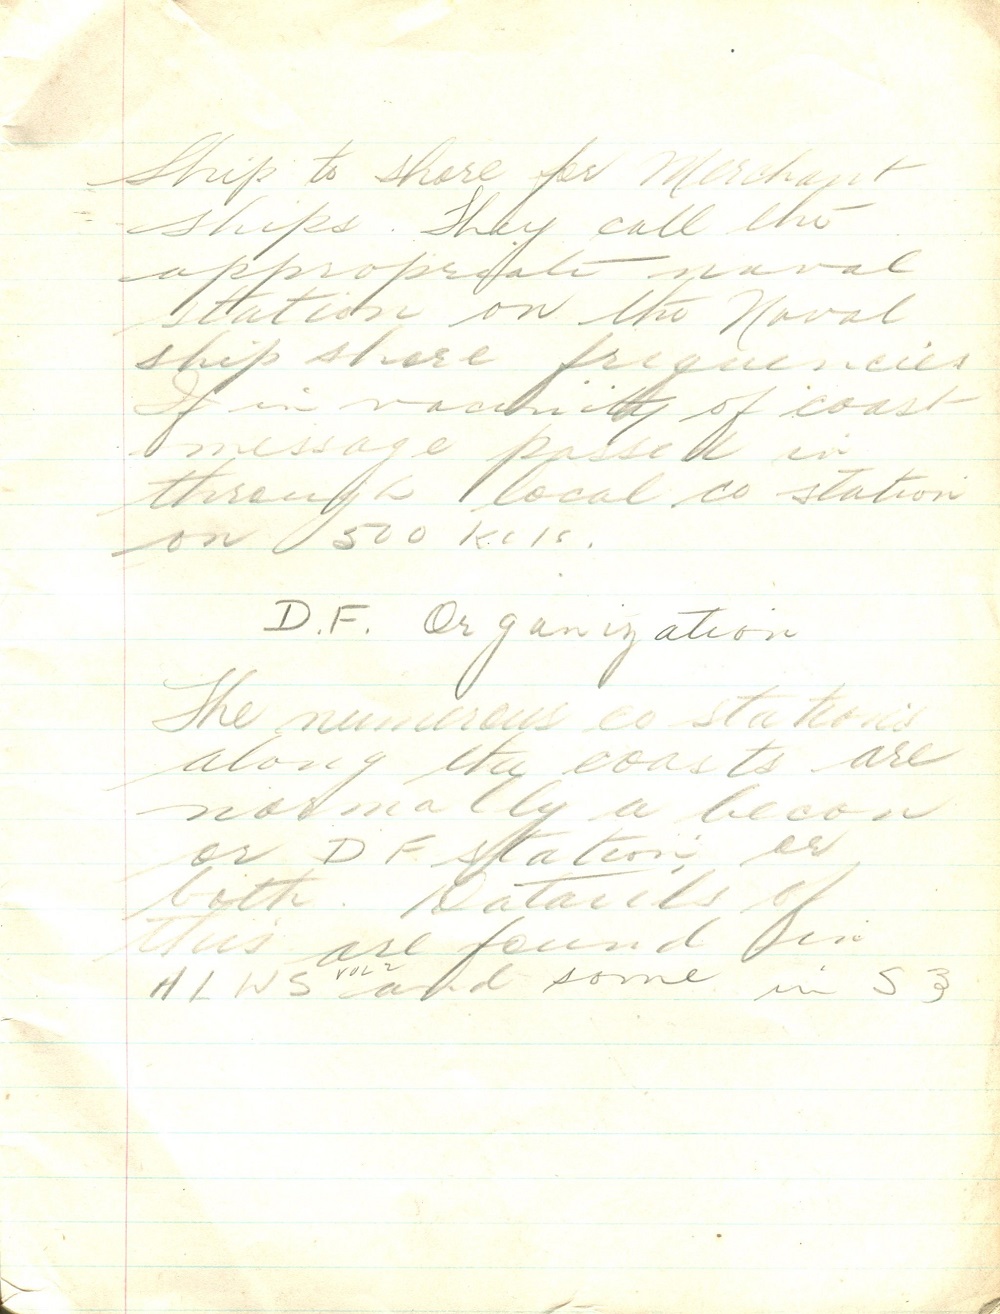 Ship to shore for Merchant
ships. They call the
appropriate naval
station on the Naval
ship shore frequencies
If in vacinity of coast
message passed in
through local co station
on 500 Kcls.
D.F. Organization
The numerous co stations
along the coasts are
normally a becon
or DF station, or
both. Datails of
this are found in
ALWS vol 2 and some in S3